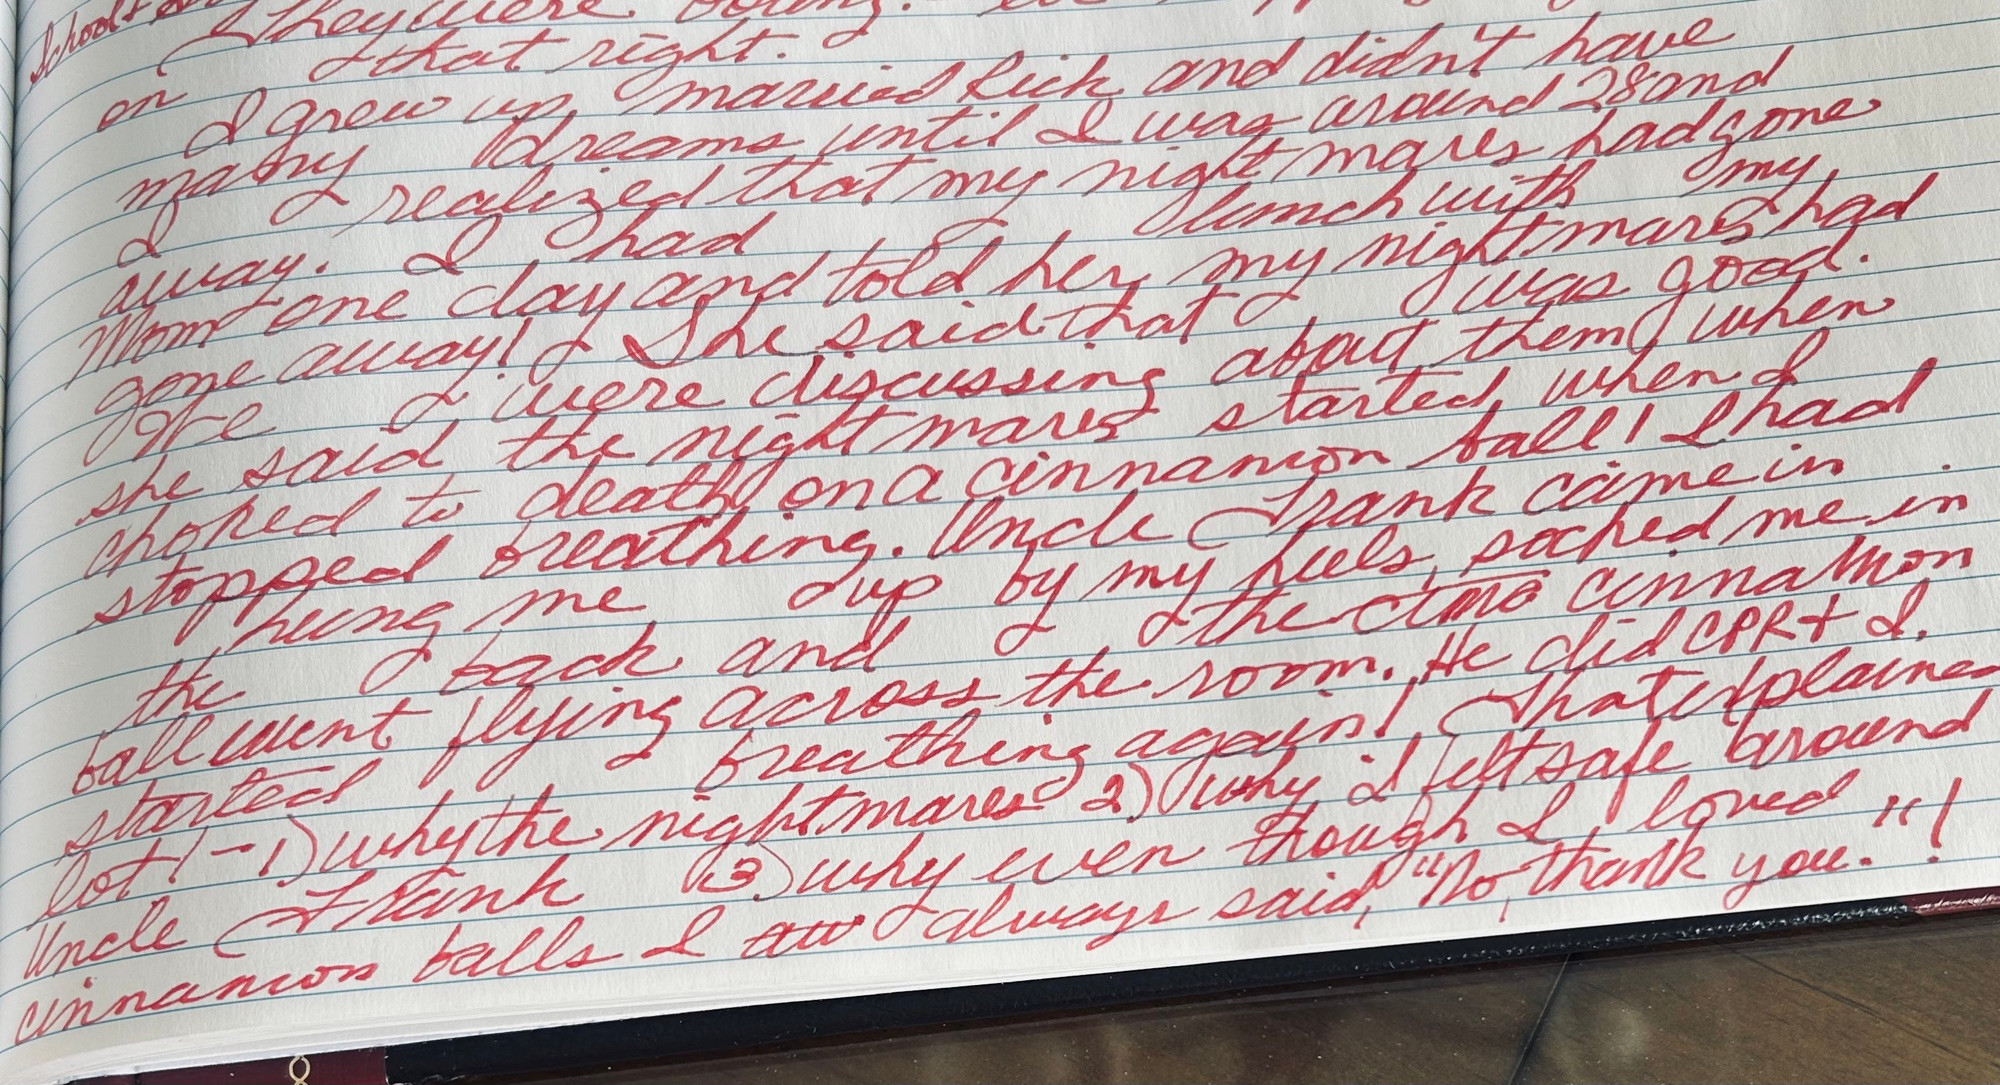 School
on They were
that right.
I grew up, married Rick and didn't have
many dreams until I was around 28 and
I realized that my nightmares had gone
away. I had lunch with my
Mom one day and told her my nightmares had
gone away! She said that was good.
We were discussing about them when
she said the nightmares started when I
choked to death on a cinnamon ball! I had
stopped breathing. Uncle Frank came in
hung me up by my heels, socked me in
the back and the cinnamon
ball went flying across the room. He did CPR + I
started breathing again! That explained
lot! - 1) why the nightmares 2) why I felt safe around
Uncle Frank 3) why even though I loved
cinnamon balls I always said, "No, thank you."!